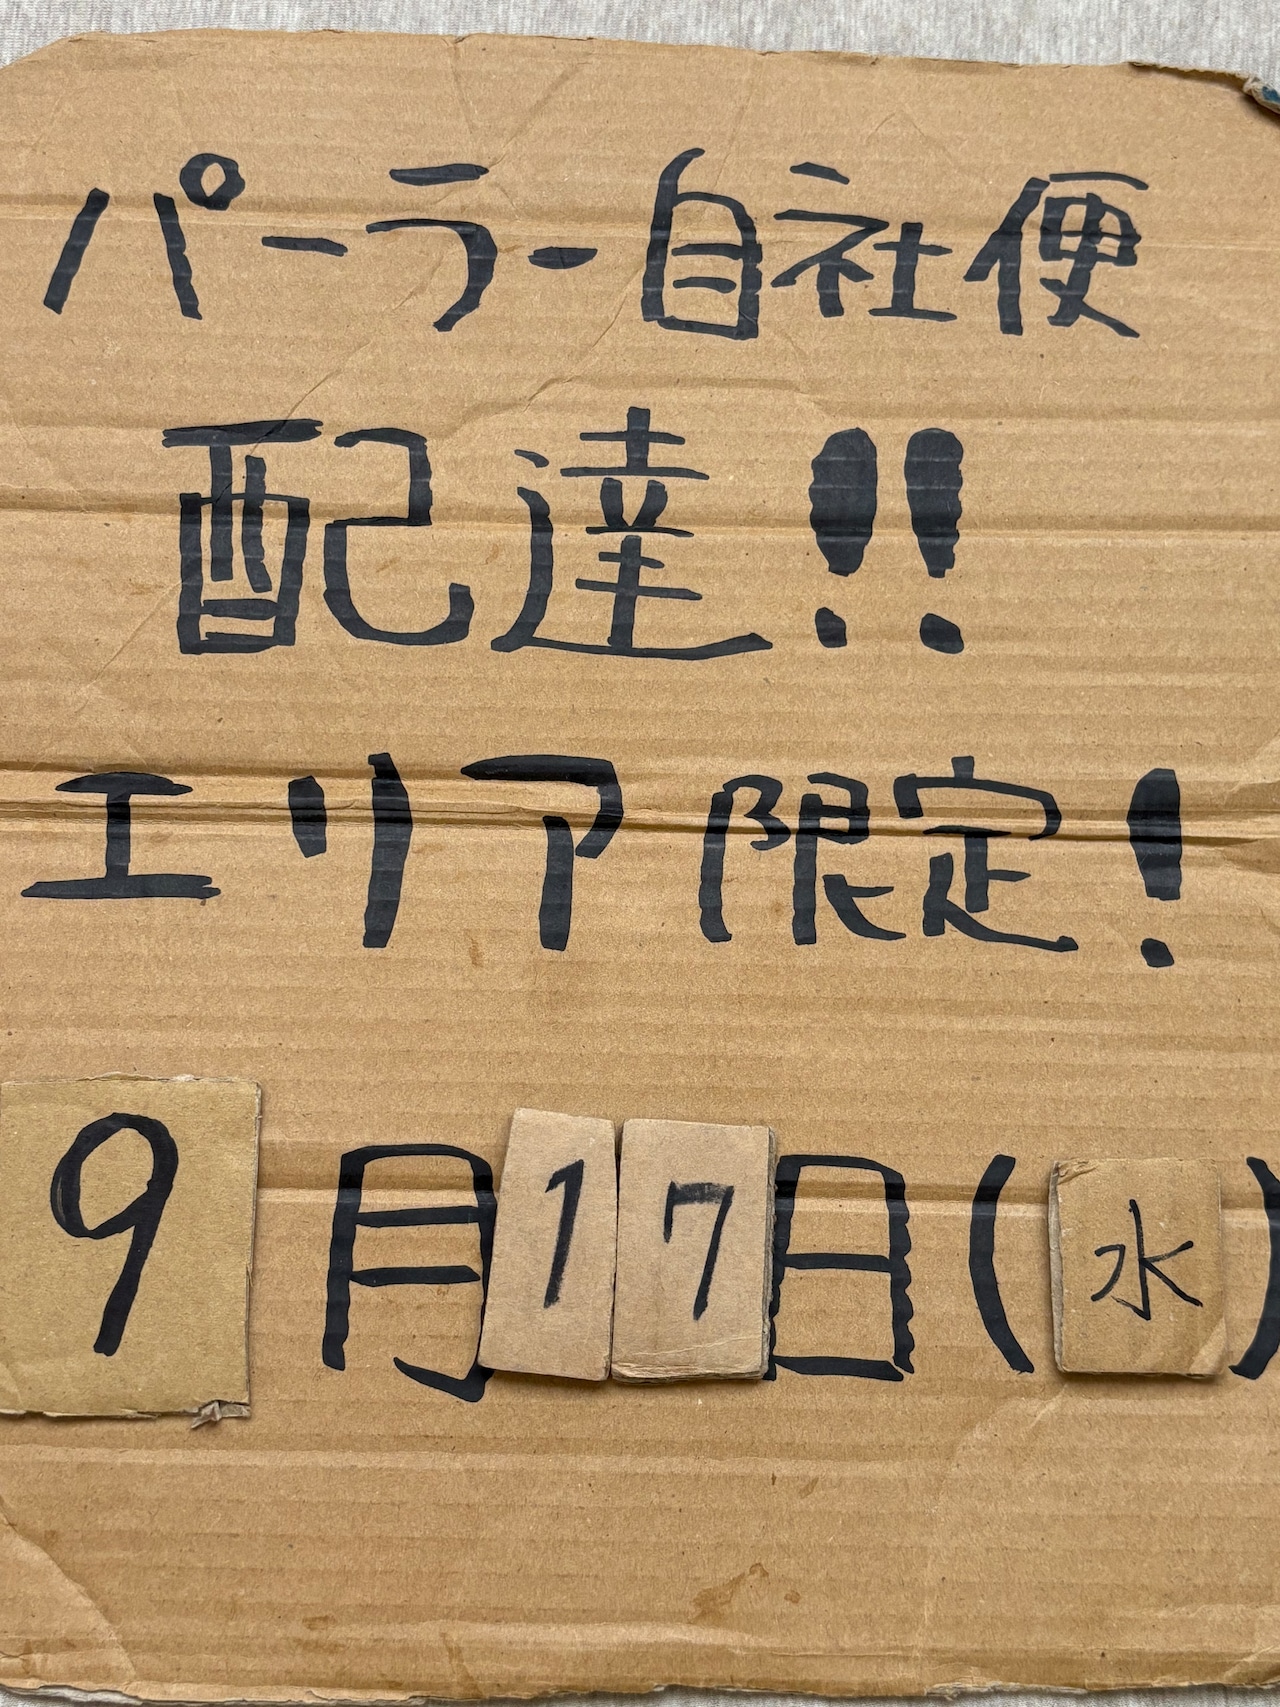 パーラー自社便
配達!!
エリア限定!
9月17日(水)